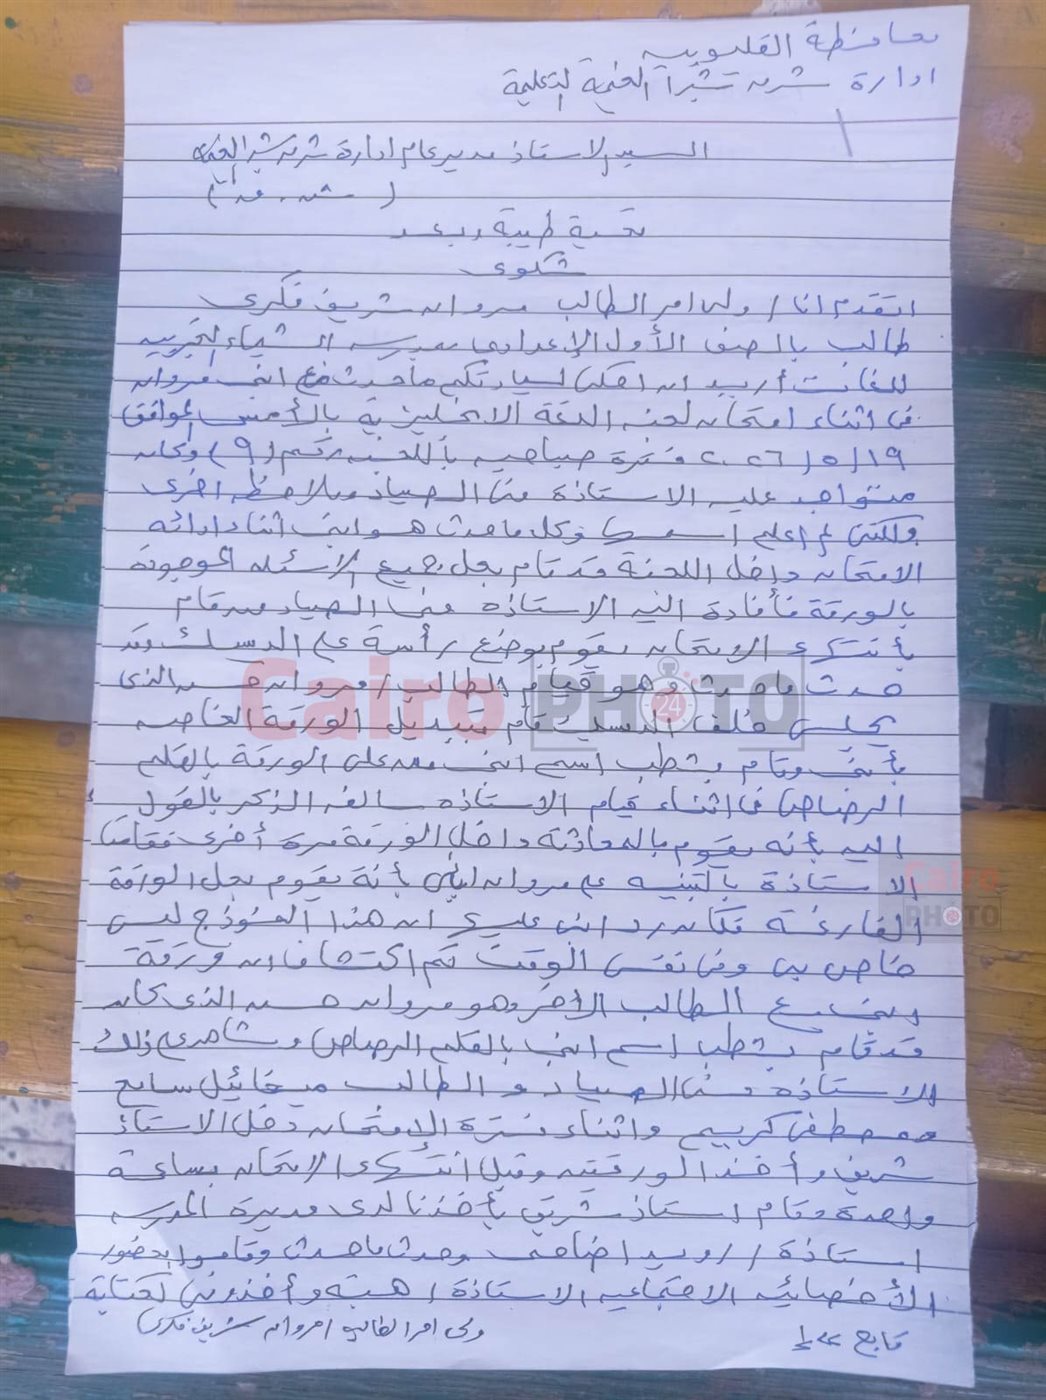 محافظة القليوبيه
ادارة شرق شبرا الخيمة التعليمية
السيد الاستاذ مدير عام ادارة شرق شبرا الخيمه
تحية طيبة وبعد
شكوى
اتقدم انا / ولى امر الطالب مروان شريف فكرى
طالب بالصف الأول الإعدادى بمدرسه الشيماء التجريبيه
للغات أريد ان احكى لسيادتكم ماحدث مع ابنى مروان
فى اثناء امتحان لجنه اللغة الانجليزية بالأمس الموافق
١٩/٥/٢٠٢٦ فترة صباحيه باللجنه رقم (٩) وكان
متواجد عليه الاستاذة منى الصياد وملاحظه اخرى
ولكنى لم اعلم اسمها وكل ماحدث هو ابنى اثناء ادائه
الامتحان داخل اللجنة قد قام بحل جميع الاسئله الموجودة
بالورقة فأفادة اليه الاستاذه منى الصياد من قام
بأنتهاء الامتحان يقوم بوضع رأسة على الدسك وقد
حدث ماحدث وهو قيام الطالب / مروان حسن الذى
يجلس خلف الدسك قام بتبديل الورقة الخاصه
بأبنى وقام بشطب اسم ابنى من على الورقة بالقلم
الرصاص فى اثناء قيام الاستاذه سالفه الذكر بالقول
اليه بأنه يقوم بالمحادثة داخل الورقة مرة أخرى فقامت
الاستاذة بالتنبيه على مروان ابنى بأنة يقوم بحل الورقة
الفارغة فكان رد ابنى عليها ان هذا النموذج ليس
خاص بى وفى نفس الوقت تم اكتشاف ان ورقة
ابنى مع الطالب الأخر وهو مروان حسن الذى كان
قد قام بشطب اسم ابنى بالقلم الرصاص وشاهد على ذلك
الاستاذة منى الصياد و الطالب ميخائيل سامح
ومصطفى كريم واثناء فترة الإمتحان دخل الاستاذ
شريف وأخذ الورقتين وقبل انتهاء الامتحان بساعة
واحدة وقام استاذ شريف بأخذنا لدى مديرة المدرسه
استاذة / وحدث ماحدث وقاموا بحضور
الأخصائيه الاجتماعيه الاستاذة / هبه وأخذونى لكتابة
ولى امر الطالب / مروان شريف فكرى
تابع
Cairo PHOTO 24
Cairo PHOTO